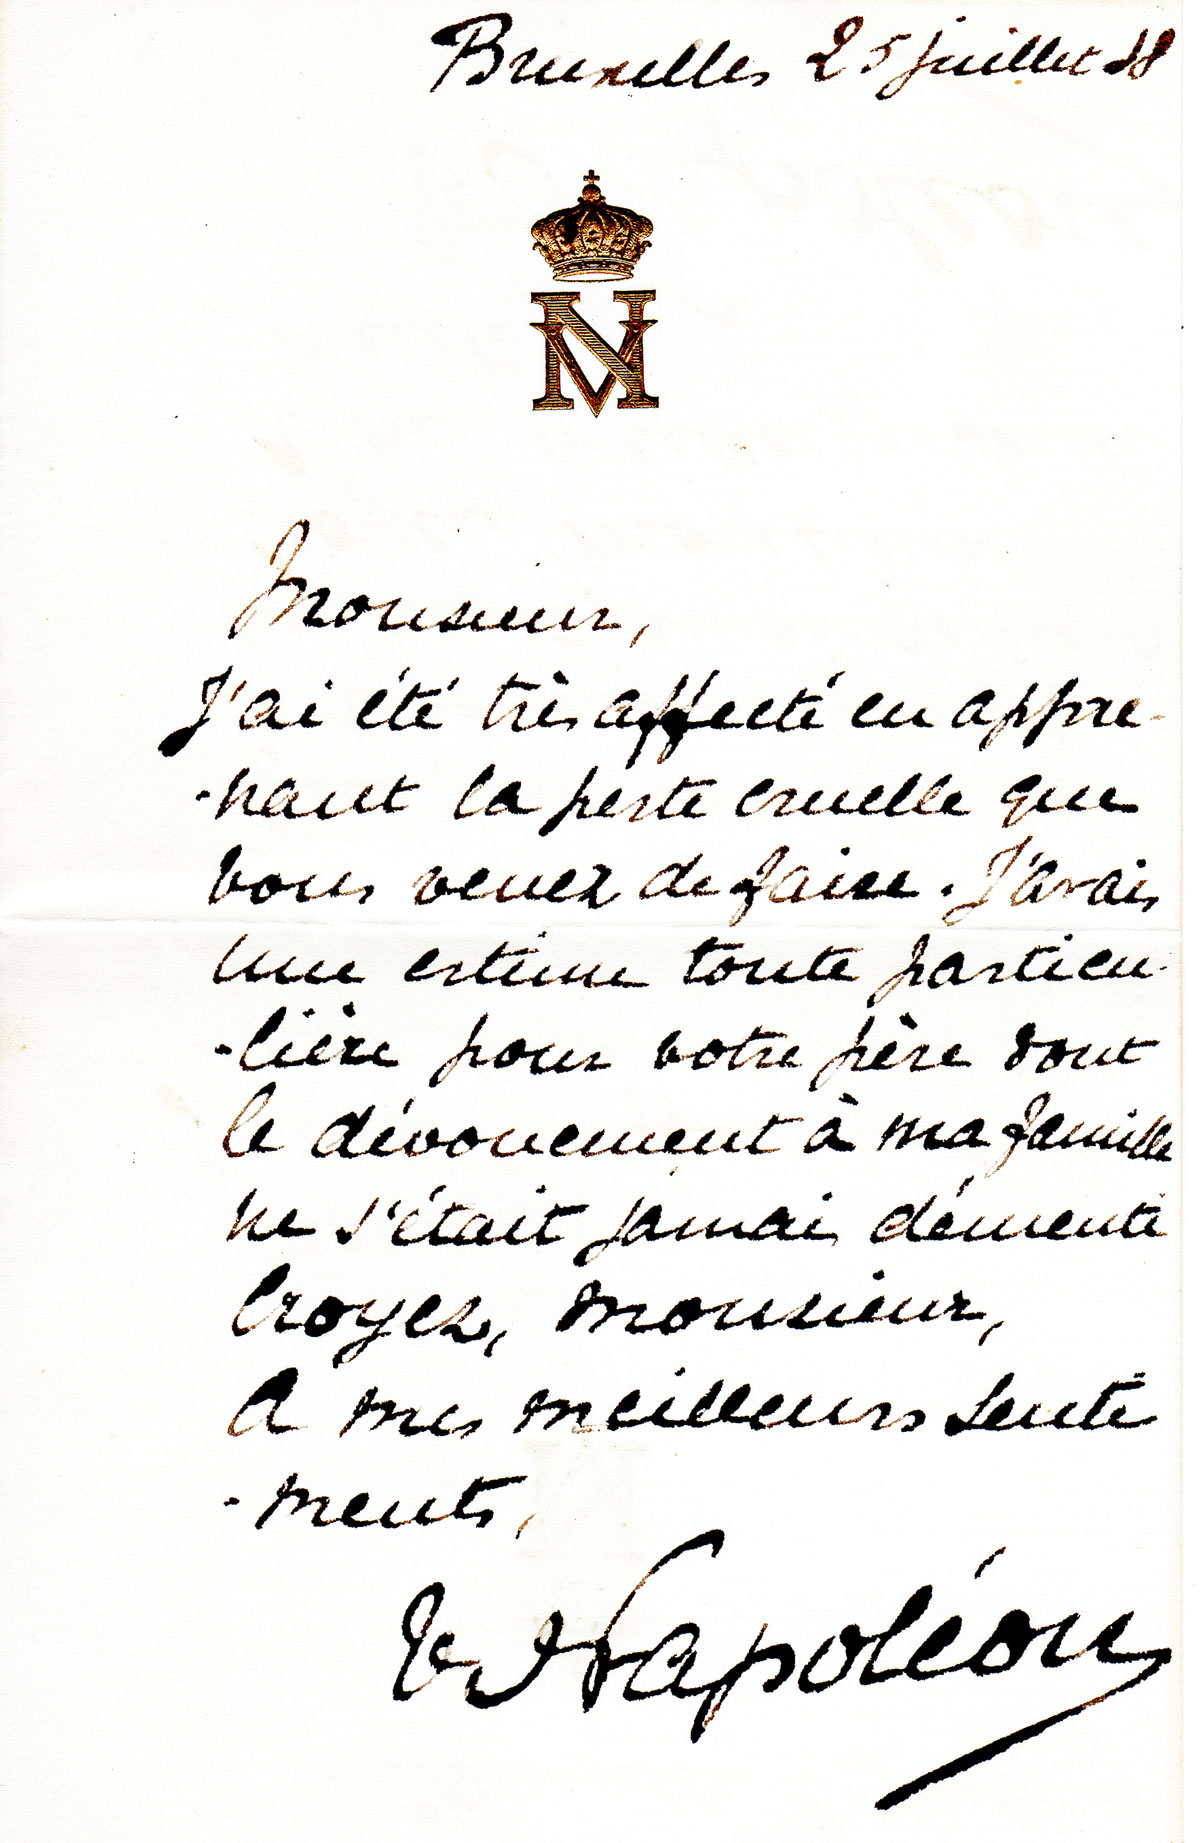 Bruxelles 25 juillet 88
NV
Monsieur,
J'ai été très affecté en appre-
-nant la perte cruelle que
vous venez de faire. J'avais
une estime toute particu-
-lière pour votre père dont
le dévouement à ma famille
ne s'était jamais démenti
Croyez, Monsieur,
A mes meilleurs senti
-ments,
V Napoléon